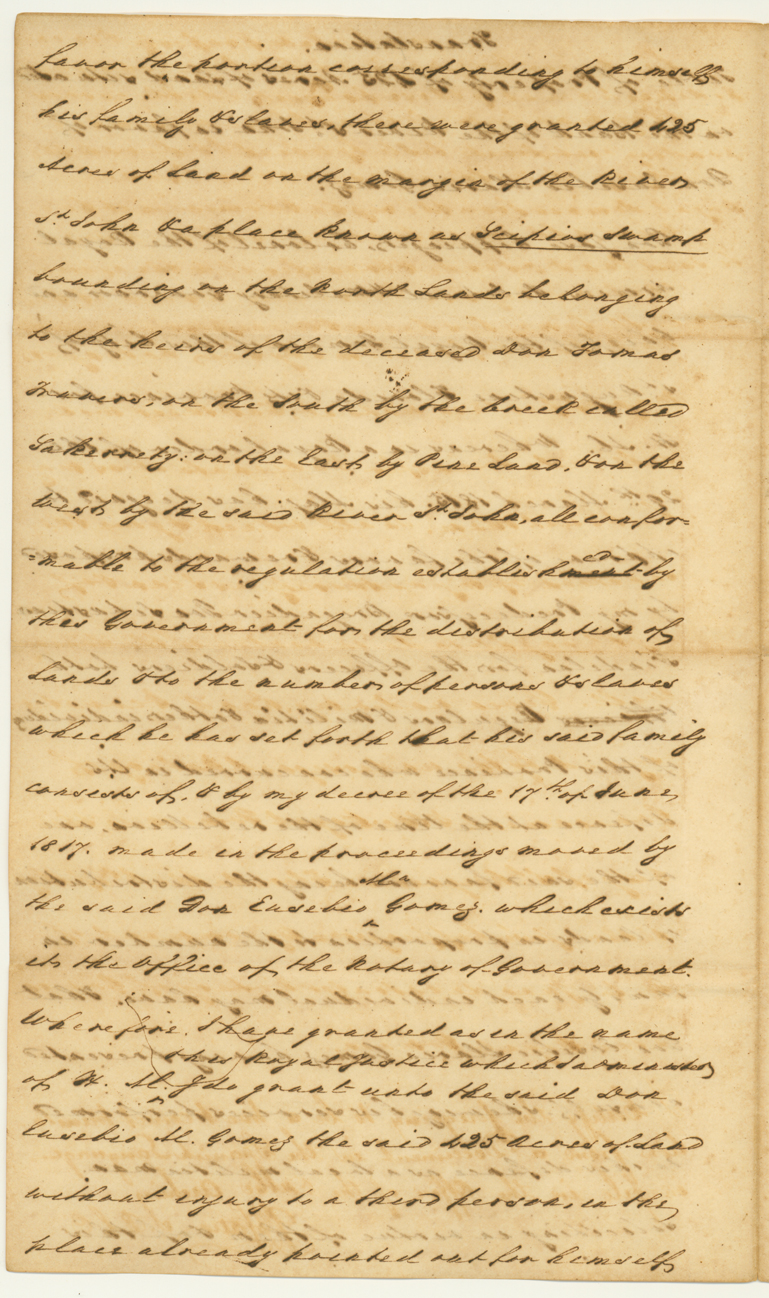 favor the portion corresponding to himself
his family & slaves, there were granted 425
Acres of Land on the margin of the River
St. John & a place known as Scipios Swamp
bounding on the North Lands belonging
to the heirs of the deceased Don Tomas
Travers, on the South by the creek called
on the East, by Pine Land, & on the
West, by the said River St. John, all confor=
=mable to the regulation establishment ed by
this Government for the distribution of
Lands & to the number of persons & slaves
which he has set forth that his said family
consists of, & by my decree of the 17th of June,
1817. made in the proceedings moved by
the said Don Eusebio Ma Gomez. which exists
in the Office of the Notary of Government.
Wherefore. I have granted as in the name
& his Royal Justice which I administer,
of H. M. I do grant unto the said Don
Eusebio M. Gomez the said 425 Acres of Land
without injury to a third person, in the
place already pointed out for himself,